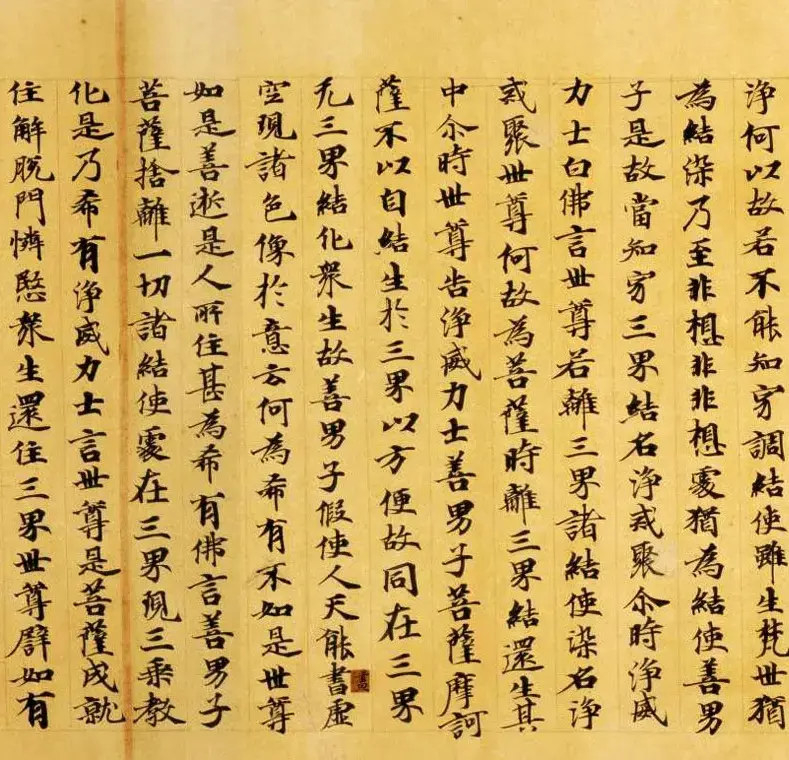 浄何以故若不能知調結使雖生梵世猶
為結染乃至非想非非想處猶為結使善男
子是故當知三界結名浄戒聚尒時浄威
力士白佛言世尊若離三界諸結使染名浄
戒聚世尊何故為菩薩時離三界結還生其
中尒時世尊告浄威力士善男子菩薩摩訶
薩不以自結生於三界以方便故同在三界
无三界結化衆生故善男子假使人天能書虛
畫
空現諸色像於意云何為希有不如是世尊
如是善逝是人所住甚為希有佛言善男子
菩薩捨離一切諸結使處在三界現三乘教
化是乃希有浄威力士言世尊是菩薩成就
住解脫門憐愍衆生還住三界世尊譬如有